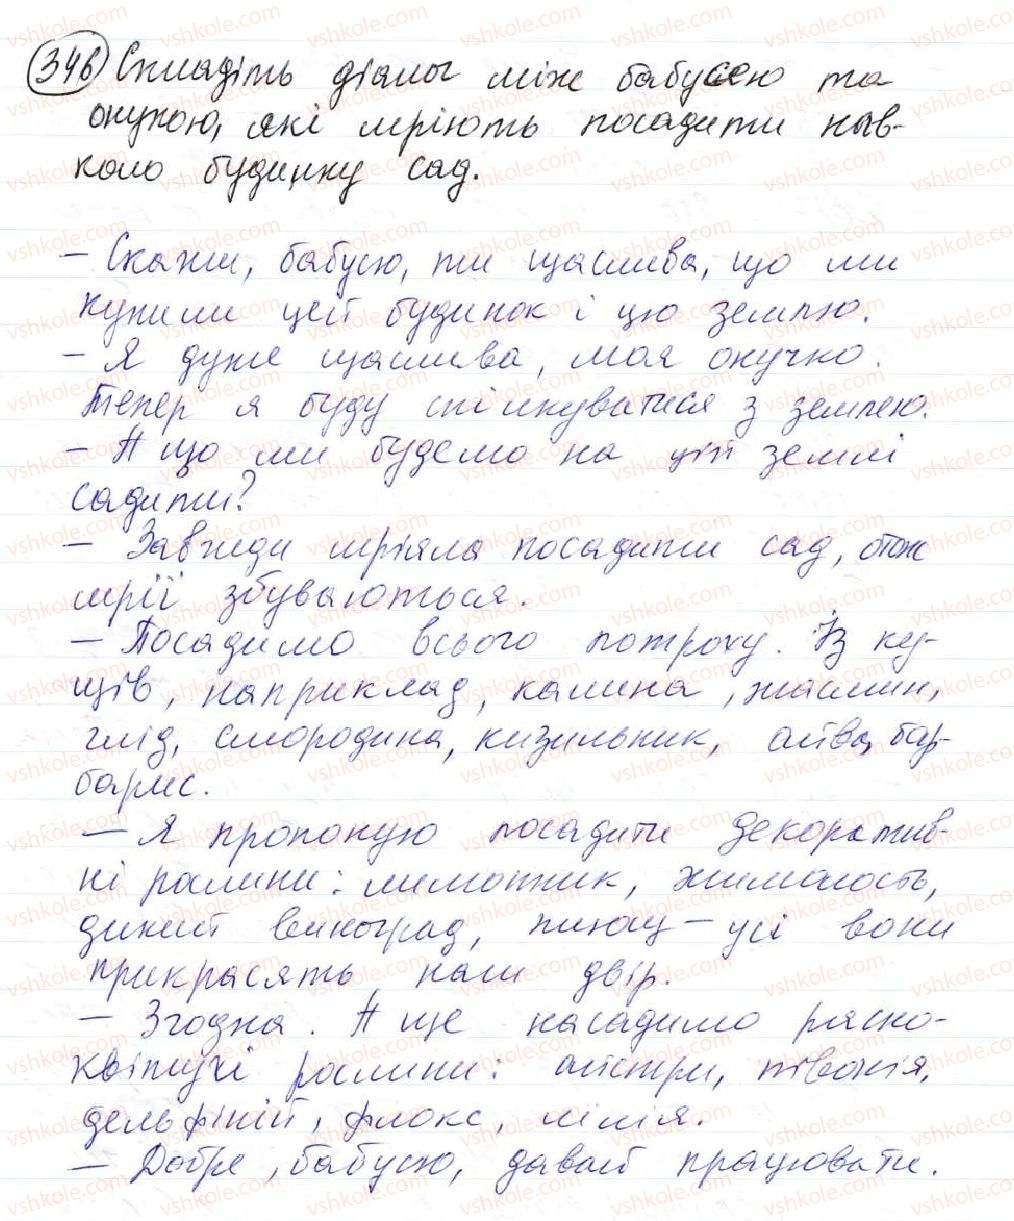 346 Складіть діалог між бабусею та
онукою, які мріють посадити нав-
коло будинку сад.
– Скажи, бабусю, ти щаслива, що ми
купили цей будинок і цю землю.
– Я дуже щаслива, моя онучко.
Тепер я буду спілкуватися з землею.
– А що ми будемо на цій землі
садити?
– Завжди мріяла посадити сад, отож
мрії збуваються.
– Посадимо всього потроху. Із ку-
щів, наприклад, калина, жасмин,
глід, смородина, кизильник, айва, бар-
барис.
– Я пропоную посадити декоратив-
ні рослини: лимонник, жимолость,
дикий виноград, плющ – усі вони
прикрасять наш двір.
– Згодна. А ще насадимо рясно-
квітучі рослини: айстри, півонія,
дельфіній, флокс, лілія.
– Добре, бабусю, давай працювати.
vshkole.com